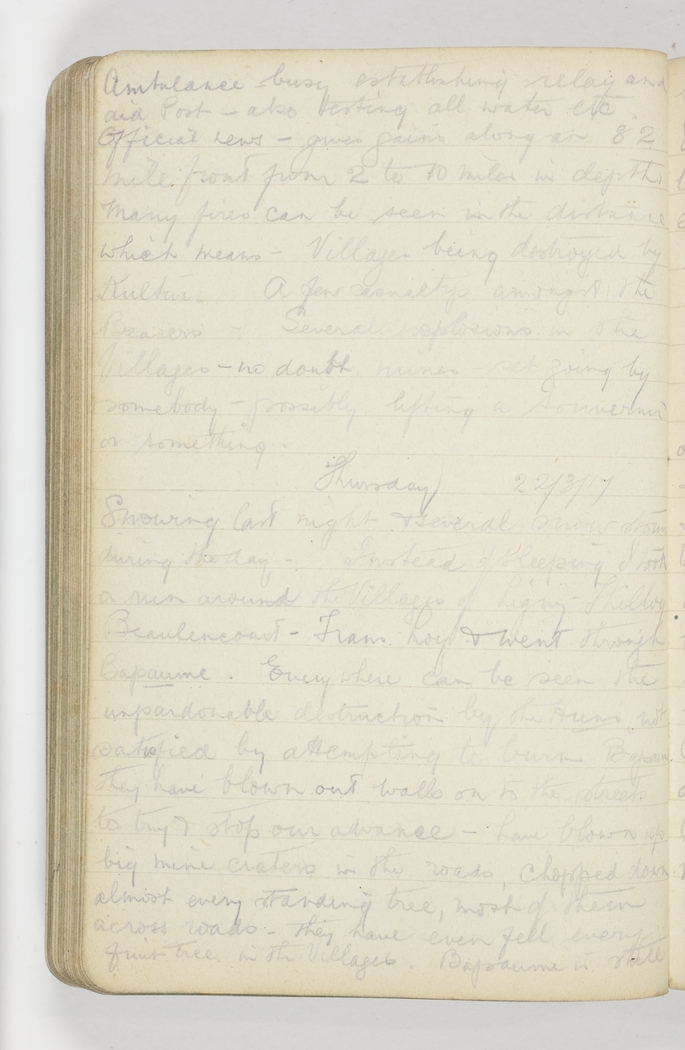 Ambulance - busy establishing relay and
aid Post - also testing all water etc.
Official news - gives gains along an 82
mile front from 2 to 10 miles in depth
Many fires can be seen in the distance
which means - Villages being destroyed by
Kultur. A few casualtys amongst the
Bearers Several explosions in the
Villages - no doubt mines - set going by
somebody - possibly lifting a souvenir
or something.
Thursday 22/3/17
Snowing last night & several snow storms
during the day -. Instead of sleeping I took
a run around the Villages of Ligny - Thilloy
Beaulencourt - Trans loy & went through
Bapaume. Everywhere can be seen the
unpardonable destruction by the Huns not
satisfied by attempting to burn Bapaume
they have blown out walls on to the streets
to try & stop our advance - have blown up
big mine craters in the roads, chopped down
almost every standing tree, most of them
across roads - they have even fell every
fruit tree in the Villages. Bapaume is still